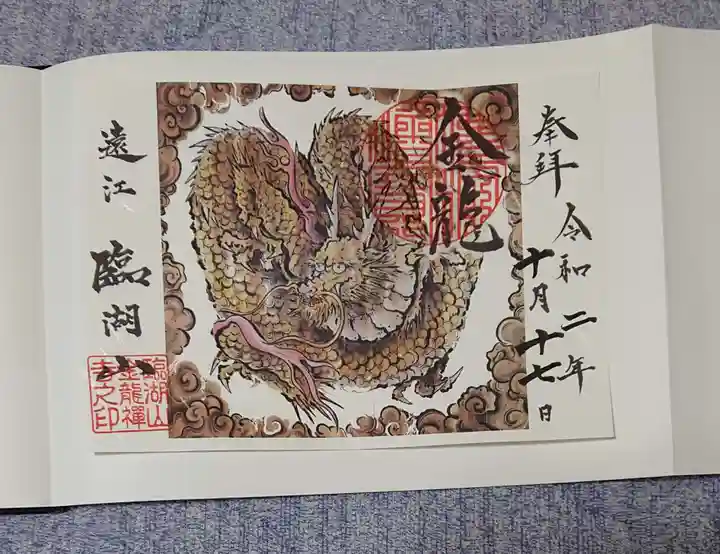 奉拝
令和二年
十月十七日
金龍
遠江
臨湖山
臨湖山
金龍禅
寺之印